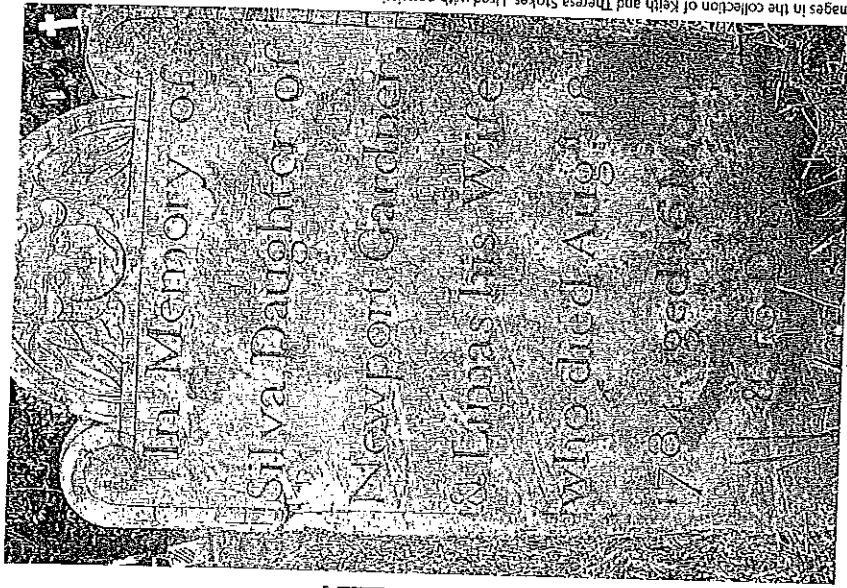 In Memory of
Silva Daughter of
Newport Gardner
& Limas his Wife
who died Aug.
178 aged
mages in the collection of Keith and Theresa Stokes. Used with